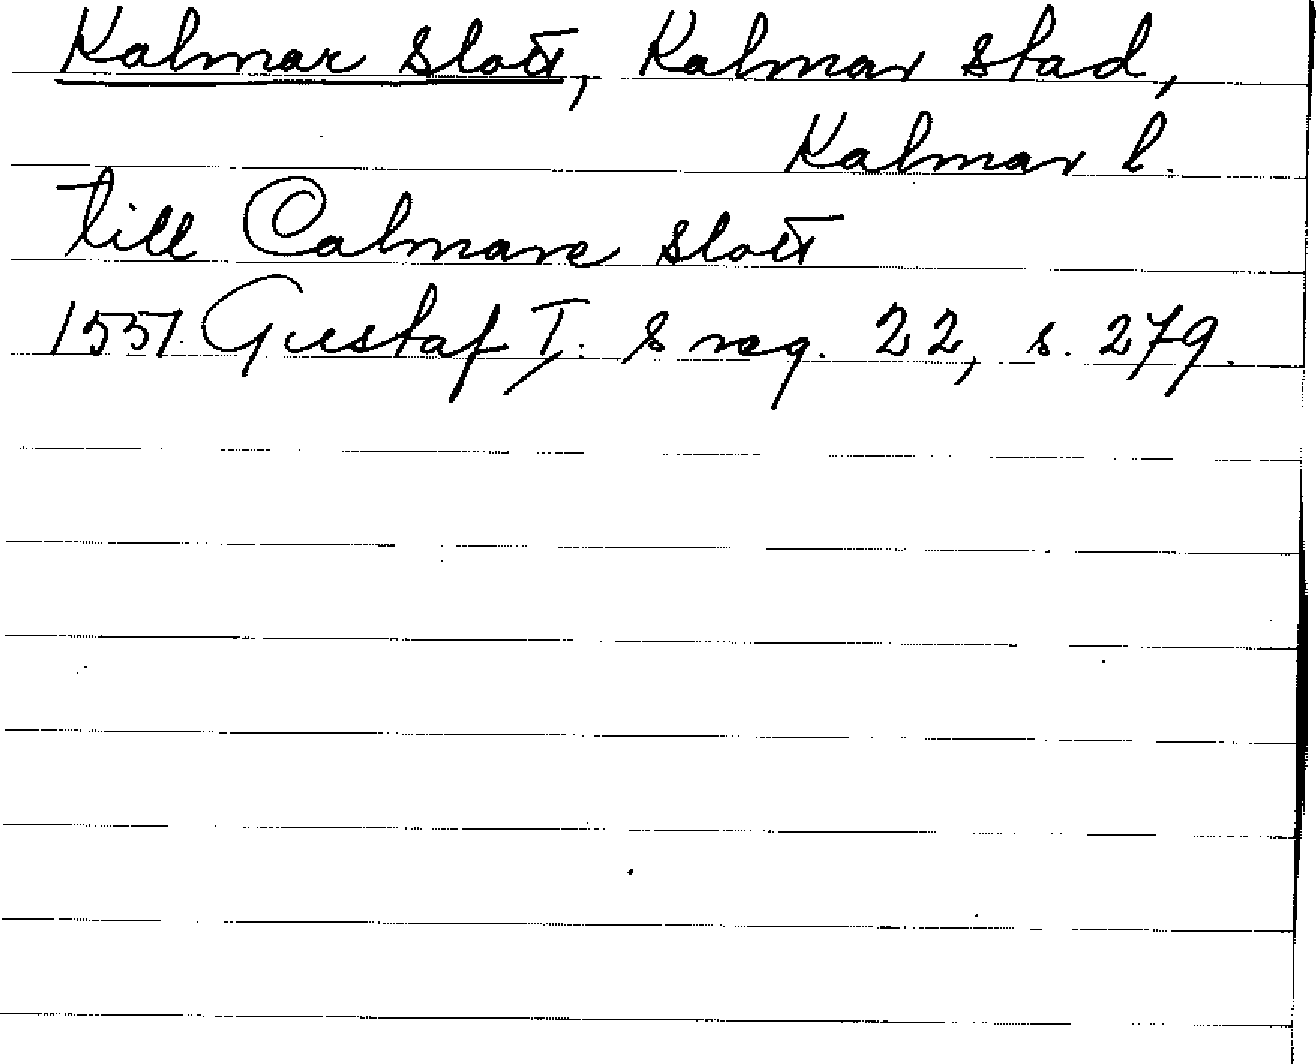 Kalmar slott, Kalmar stad,
Kalmar l.
till Calmare slott
1551. Gustaf I: s reg. 22, s. 279.